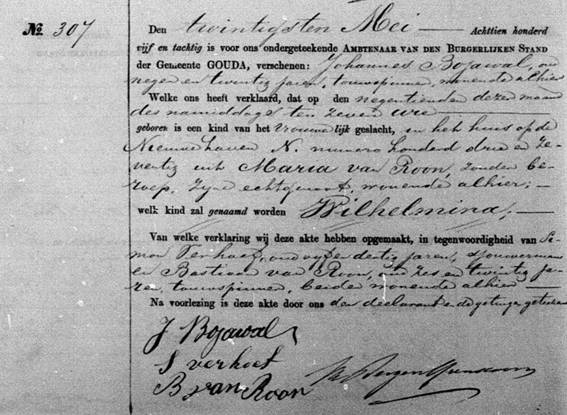 No. 307
Den twintigsten Mei Achttien honderd
vijf en tachtig is voor ons ondergeteekende AMBTENAAR VAN DEN BURGERLIJKEN STAND
der Gemeente GOUDA, verschenen: Johannes Bojawal, oud
negen en twintig jaren, touwspinner, wonende alhier
Welke ons heeft verklaard, dat op den negentienden dezer maand
des namiddags ten zeven ure
geboren is een kind van het vrouwelijk geslacht, in het huis op de
Nieuwehaven N. numero honderd drie en ze-
ventig uit Maria van Roon, zonder be-
roep, zijne echtgenoot, wonende alhier;
welk kind zal genaamd worden Wilhelmina,
Van welke verklaring wij deze akte hebben opgemaakt, in tegenwoordigheid van Si-
mon Verhoef, oud vijf en dertig jaren, sjouwerman
en Bastiaan van Roon, oud zes en twintig ja-
ren, touwspinner, beide wonende alhier
Na voorlezing is deze akte door ons den declarant en de getuigen geteekend
J Bojawal
S verhoef
B van Roon